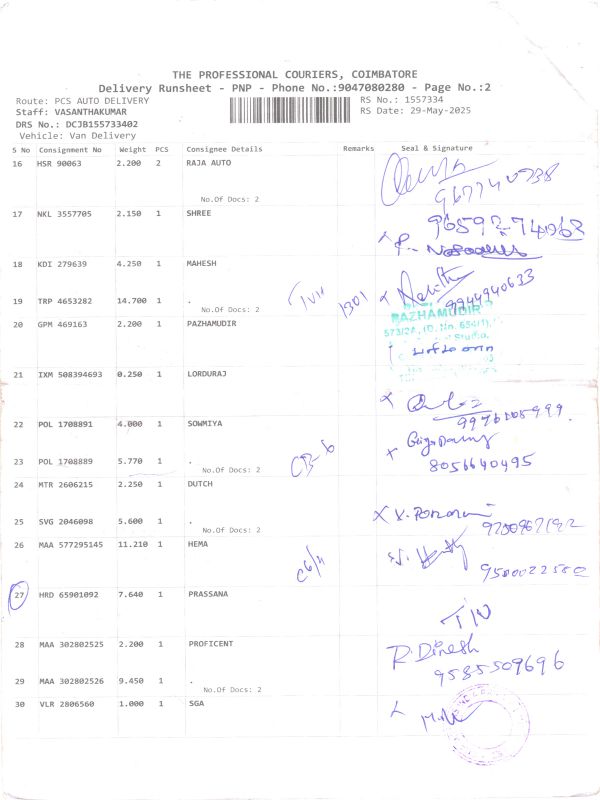 THE PROFESSIONAL COURIERS, COIMBATORE
Delivery Runsheet - PNP - Phone No.:9047080280 - Page No.:2
Route: PCS AUTO DELIVERY RS No.: 1557334
Staff: VASANTHAKUMAR RS Date: 29-May-2025
DRS No.: DCJB155733402
Vehicle: Van Delivery
S No Consignment No Weight PCS Consignee Details Remarks Seal & Signature
16 HSR 90063 2.200 2 RAJA AUTO
No.Of Docs: 2
17 NKL 3557705 2.150 1 SHREE
18 KDI 279639 4.250 1 MAHESH
19 TRP 4653282 14.700 1 . 1301 9944940633
No.Of Docs: 2
PAZHAMUDIR
20 GPM 469163 2.200 1 PAZHAMUDIR
21 IXM 508394693 0.250 1 LORDURAJ
22 POL 1708891 4.000 1 SOWMIYA
23 POL 1708889 5.770 1 . 8056640495
No.Of Docs: 2
24 MTR 2606215 2.250 1 DUTCH
25 SVG 2046098 5.600 1 .
No.Of Docs: 2
26 MAA 577295145 11.210 1 HEMA
9500022580
27 HRD 65901092 7.640 1 PRASSANA
28 MAA 302802525 2.200 1 PROFICENT R. Dinesh
9585509696
29 MAA 302802526 9.450 1 .
No.Of Docs: 2
30 VLR 2806560 1.000 1 SGA